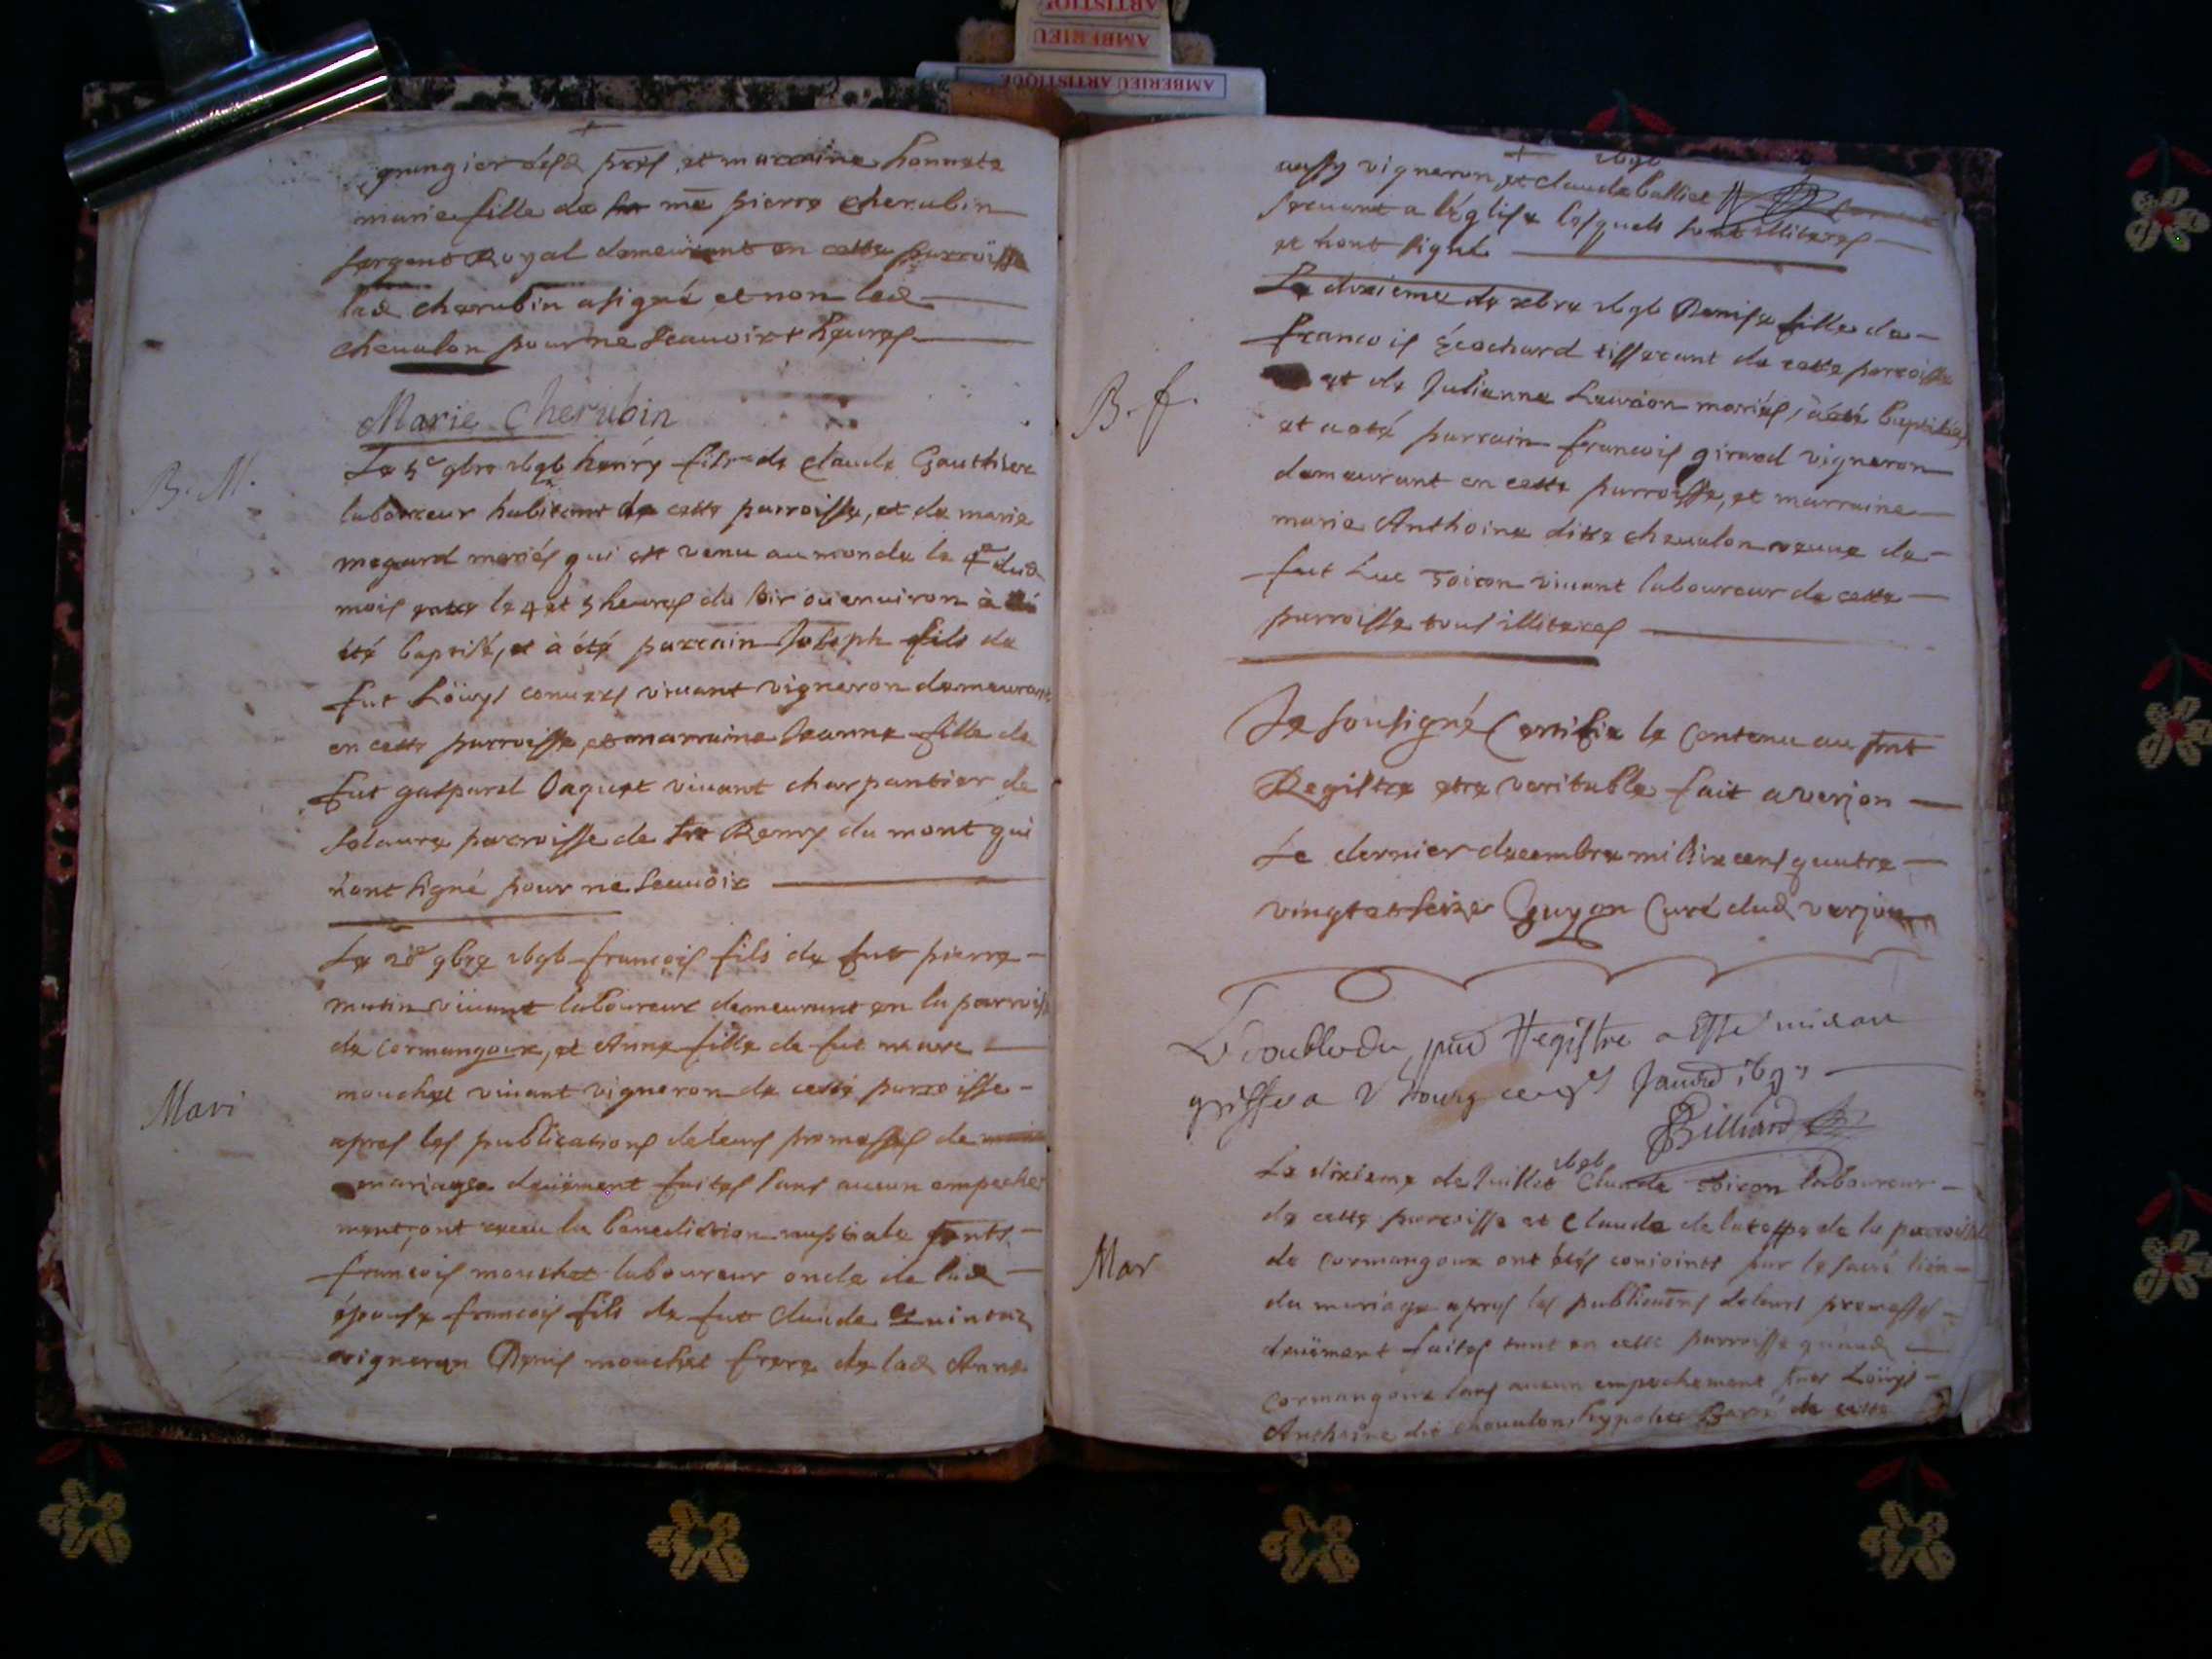 ARTISTIQUE
AMBERIEU
AMBERIEU ARTISTIQUE
grangier et marraine honnete
marie fille de me pierre cherubin
sergent Royal demeurant en cette parroisse
lad cherubin a signé et non led
cheualon pour ne scauoir
Marie Cherubin
B. M.
Le 5e 9bre henry fils de claude Gauthier
laboureur habitant de cette parroisse, et de marie
megard mariés qui est venu au monde le 4e dud
mois entre le 4 et 5 heures du soir ou enuiron à
été baptisé, et à été parrain Joseph fils de
fut Löuys viuant vigneron demeurant
en cette parroisse, et marraine Jeanne fille de
fut gaspard viuant charpantier de
solaure parroisse de st Remy du mont qui
n'ont signé pour ne scauoir
Le 9bre françois fils de fut pierre
mutin viuant laboureur demeurant en la parroisse
de cormangoux, et Anne fille de fut
mouchet viuant vigneron de cette parroisse
apres les publications de leurs promesses de
mariage deüement faites sans aucun empeche
ment, ont receu la benediction nuptiale pnts
françois mouchet laboureur oncle de lad
épouse françois fils de fut Claude
vigneron Denis mouchet frere de lad Anne
Mari
aussy vigneron, et claude balliet
seruant a l'église lesquels sont illiteres
et n'ont signé
Le dixieme de xbre Denise fille de
françois Écochard tisserant de cette parroisse
et de Julienne mariés, à été baptisée
et a eté parrain françois girard vigneron
demeurant en cette parroisse, et marraine
marie Anthoine ditte cheualon veuue de
fut Luc Loiron viuant laboureur de cette
parroisse tous illiteres
B. f.
Je sousigné Certifie le Contenu au pnt
Registre etre veritable fait a verjon
Le dernier decembre mil six cens quatre
vingt et seize Guyon Curé dud verjon
Le double du pnt Registre a esté mis au
greffe a Bourg ce Janvier 1697
Billiard
Le dixieme de Juillet Claude Loiron laboureur
de cette parroisse et Claude de la teppe de la parroisse
de cormangoux ont étés conioints par le sacré lien
du mariage apres les publications de leurs promesses
deüement faites tant en cette parroisse qu'aud
Cormangoux sans aucun empechement pnts Löuys
Anthoine dit cheualon, hypolite de cette
Mar